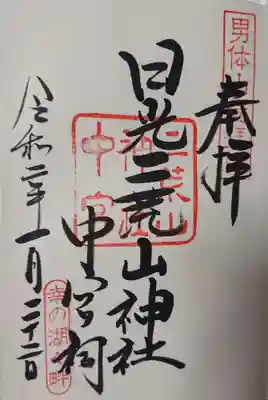 男体山
奉拝
日光二荒山神社
中宮祠
二荒山
神社
中宮
令和二年一月二十二日
幸の湖畔